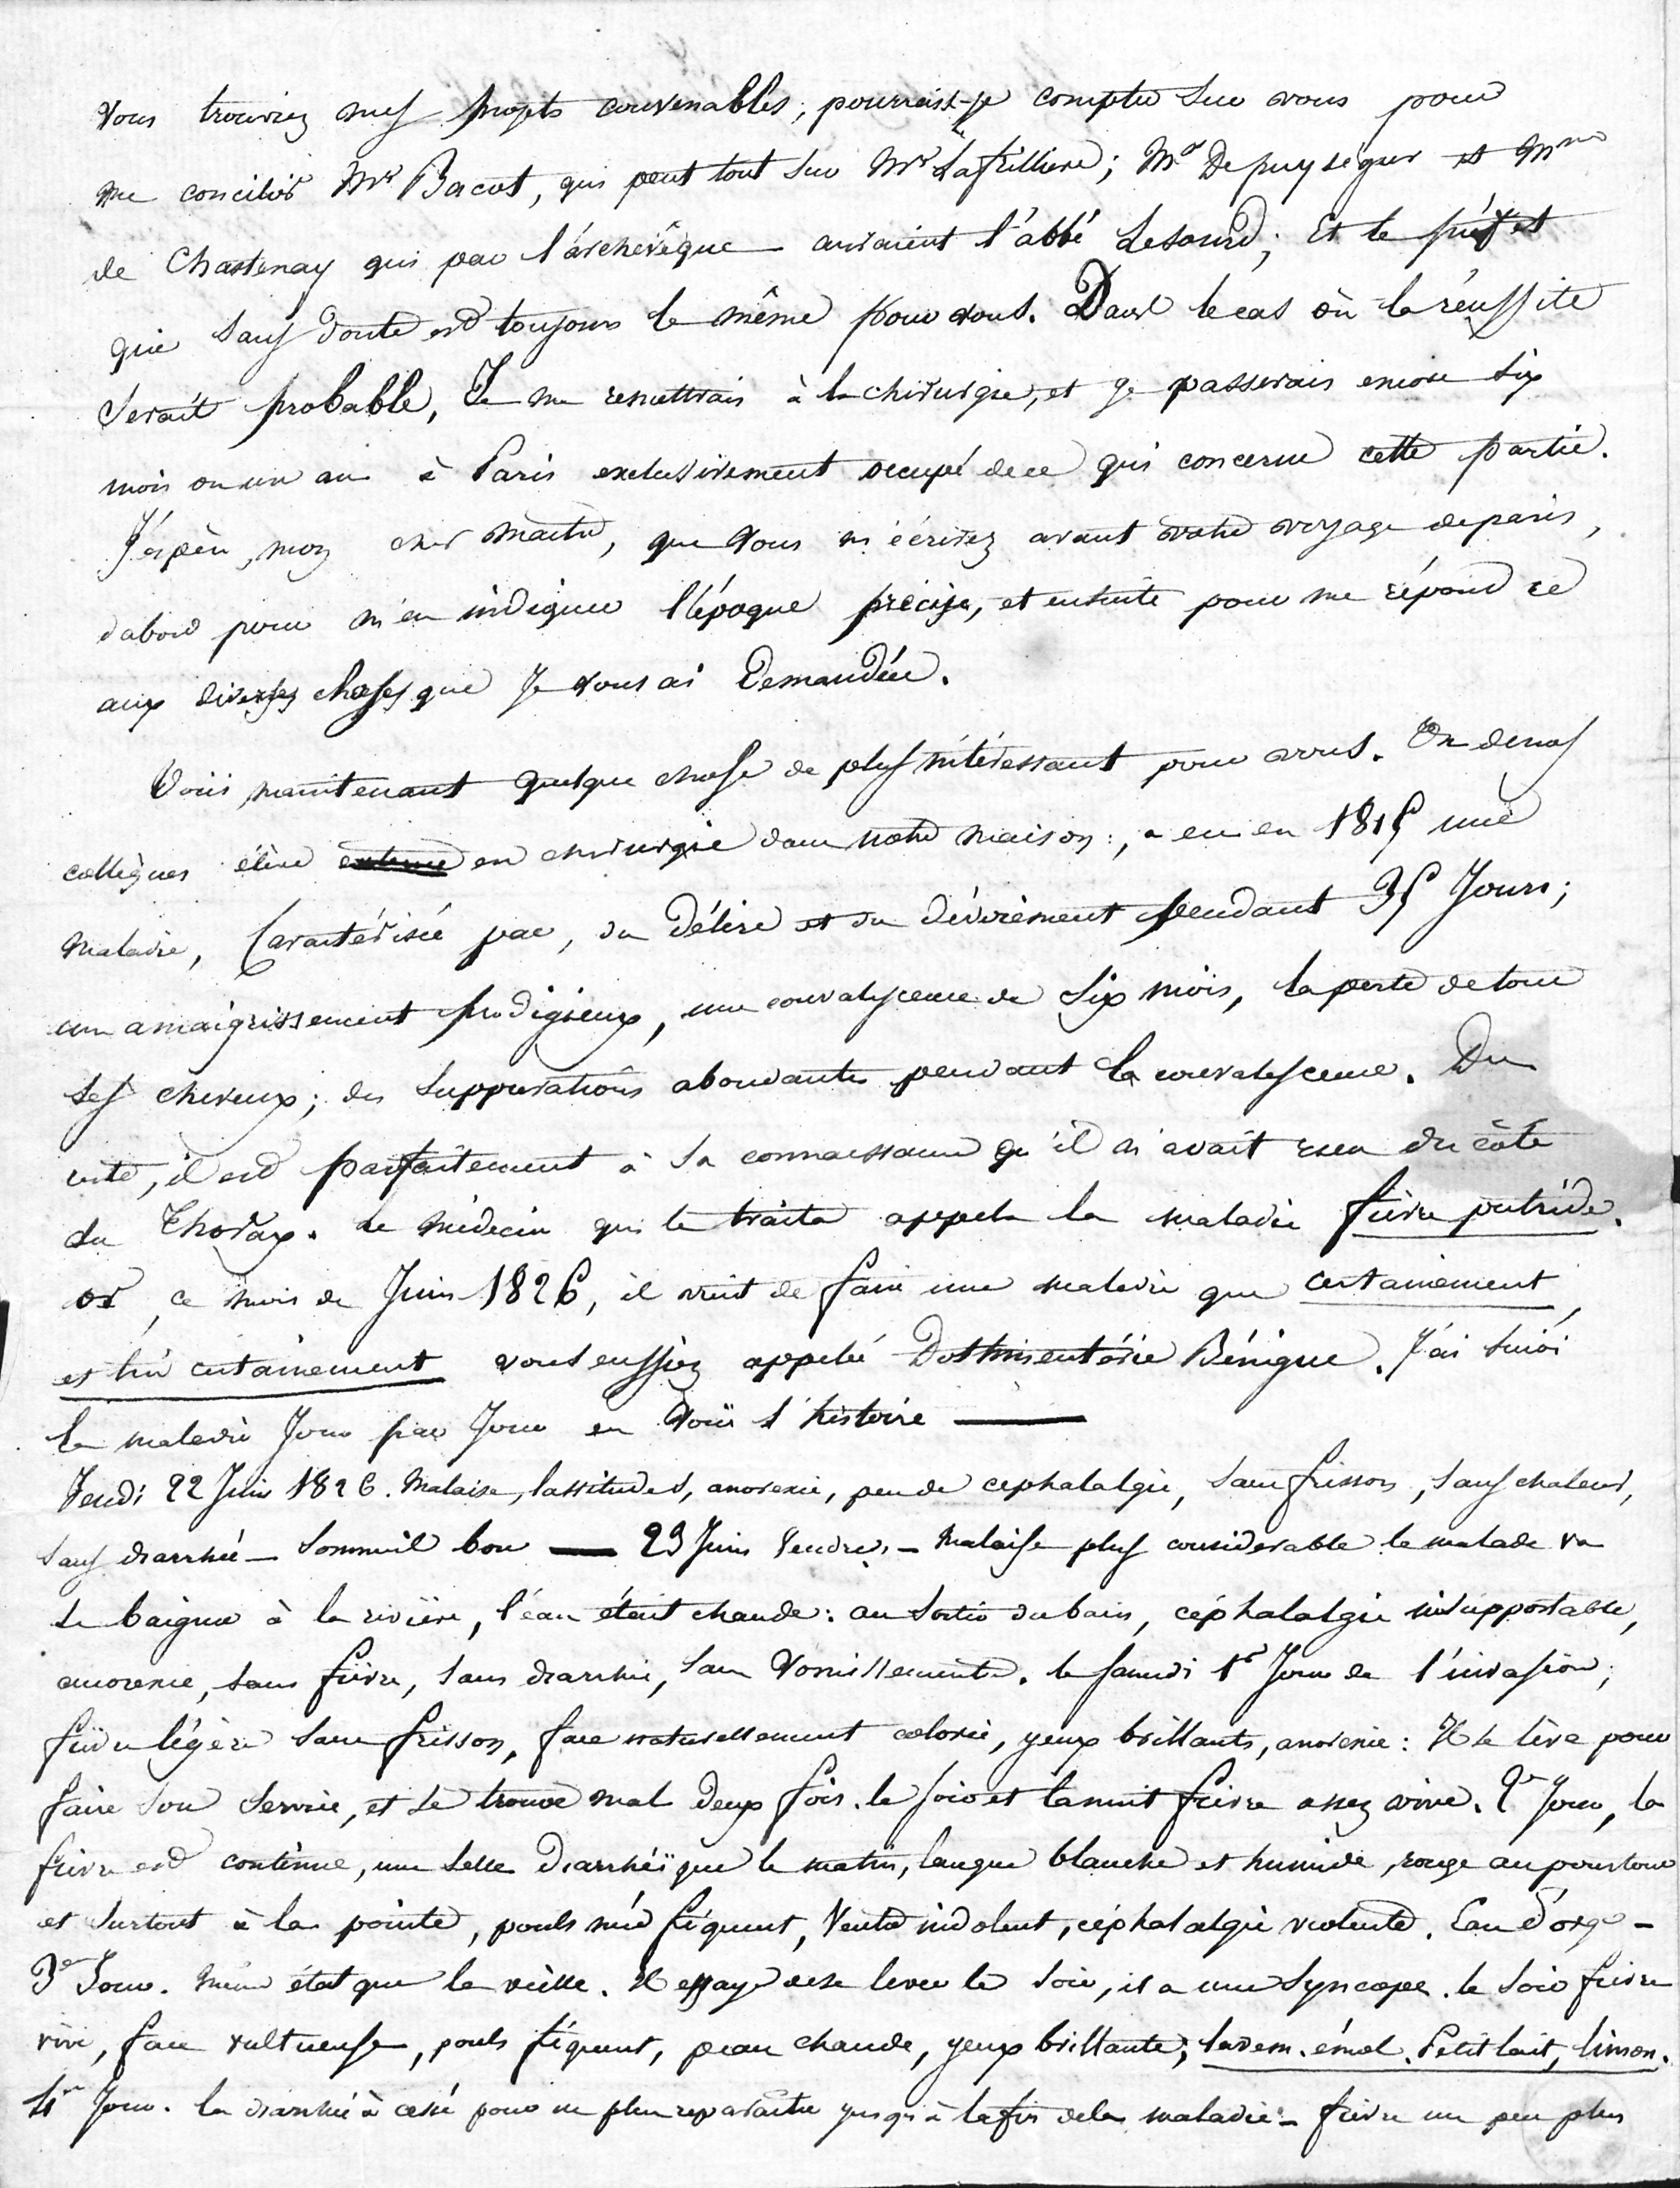 vous trouviez mes projets convenables; pourrais-je compter sur vous pour
me concilier Mr Bacot, qui peut tout sur Mr Lafrilliere; Mr Depuysegur et Mme
de Chastenay qui par l'archevêque auraient l'abbé Lesourd; Et le préfet
qui sans doute est toujours le même pour vous. Dans le cas où la réussite
serait probable, Je me remettrais à la chirurgie, et je passerais encore six
mois ou un an à Paris exclusivement occupé de ce qui concerne cette partie.
J'espère, mon cher maître, que vous m'écrirez avant votre voyage de paris,
dabord pour m'en indiquer l'époque précise, et ensuite pour me répondre
aux diverses choses que Je vous ai Demandées.
Voici maintenant quelque chose de plus intéressant pour vous. Un denos
collègues élève en chirurgie dans notre maison:, a eu en 1815 une
maladie, Caractérisée par, du Délire et du dévoiement pendant 35 Jours;
un amaigrissement prodigieux, une convalescence de Six mois, la perte de tous
ses cheveux; des suppurations abondantes pendant la convalescence. Du
reste, il est parfaitement à sa connaissance qu'il n'avait rien du côté
du Thorax. Le médecin qui le traita appela la maladie fièvre putride.
or, ce mois de Juin 1826, il vient de faire une maladie que certainement,
et très certainement vous eussiez appelée Dothinentérie Bénigne. J'ai suivi
la maladie Jour par Jour en voici l'histoire —
Jeudi 22 Juin 1826. Malaise, lassitudes, anorexie, peu de cephalalgie, sans frisson, sans chaleur,
sans diarrhée — Sommeil bon — 23 Juin Vendredi — Malaise plus considerable le malade va
se baigner à la rivière, l'eau était chaude: au sortir du bain, céphalalgie insupportable,
anorexie, sans fièvre, sans diarrhée, sans vomissements. le samedi 1er Jour de l'invasion;
fièvre légère sans frisson, face naturellement colorée, yeux brillants, anorexie: Il se lève pour
faire son service, et se trouve mal deux fois. le soir et la nuit fièvre assez vive. 2e Jour, la
fièvre est continue, une selle Diarrhéïque le matin, langue blanche et humide, rouge au pourtour
et surtout à la pointe, pouls fréquent, Ventre indolent, céphalalgie violente. Eau d'orge —
3e Jour. même état que la veille. Il essaye de se lever le soir, il a une Syncope. le soir fièvre
vive, face vultueuse, pouls fréquent, peau chaude, yeux brillants; lavem. émol. Petit lait, limon.
4e Jour. la diarrhée à cessé pour ne plus reparaître jusqu'à la fin de la maladie — fièvre un peu plus